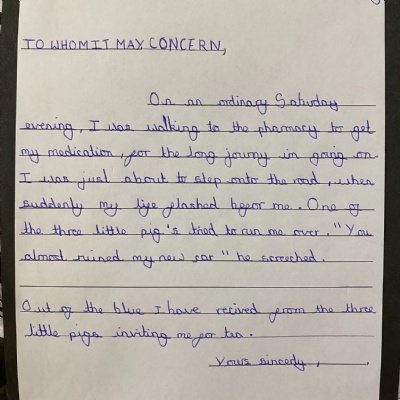 TO WHOM IT MAY CONCERN,
On an ordinary Saturday
evening, I was walking to the pharmacy to get
my medication, for the long journy im going on.
I was just about to step onto the road, when
suddenly my life flashed befor me. One of
the three little pig's tried to run me over. "You
almost ruined my new car" he screeched.
Out of the blue I have recived from the three
little pigs inviting me for tea.
Yours sincerly,